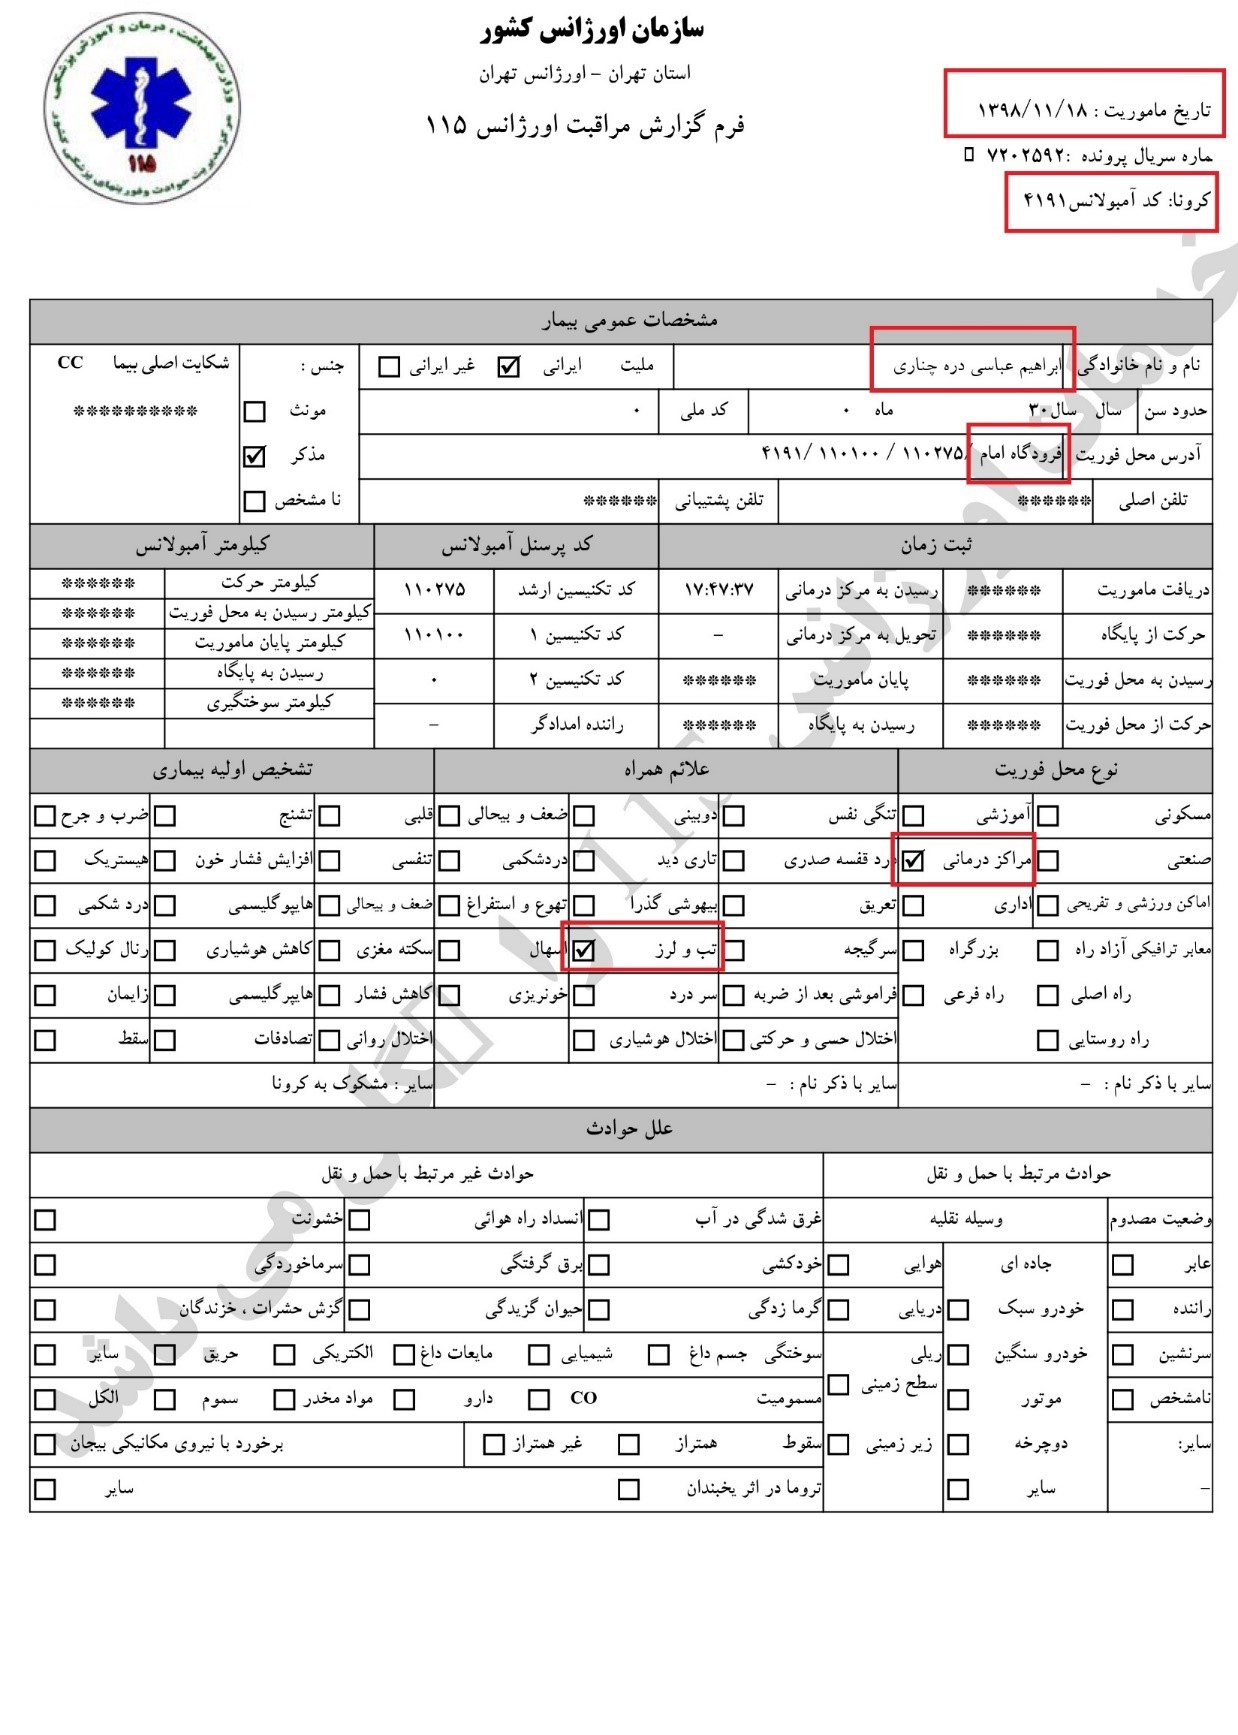 سازمان اورژانس کشور
استان تهران - اورژانس تهران
فرم گزارش مراقبت اورژانس ۱۱۵
تاریخ ماموریت : ۱۳۹۸/۱۱/۱۸
ماره سریال پرونده :۷۲۰۲۵۹۲
کرونا: کد آمبولانس۴۱۹۱
وزارت بهداشت ، درمان و آموزش پزشکی
مرکز مدیریت حوادث و فوریتهای پزشکی کشور
۱۱۵
مشخصات عمومی بیمار
نام و نام خانوادگی ابراهیم عباسی دره چناری ملیت ایرانی غیر ایرانی جنس : شکایت اصلی بیما CC
حدود سن سال سال۳۰ ماه ۰ کد ملی ۰ مونث **********
آدرس محل فوریت فرودگاه امام /۱۱۰۲۷۵ / ۱۱۰۱۰۰ /۴۱۹۱ مذکر
تلفن اصلی ****** تلفن پشتیبانی ****** نا مشخص
ثبت زمان کد پرسنل آمبولانس کیلومتر آمبولانس
دریافت ماموریت ****** رسیدن به مرکز درمانی ۱۷:۴۷:۳۷ کد تکنیسین ارشد ۱۱۰۲۷۵ کیلومتر حرکت ******
کیلومتر رسیدن به محل فوریت ******
حرکت از پایگاه ****** تحویل به مرکز درمانی - کد تکنیسین ۱ ۱۱۰۱۰۰ کیلومتر پایان ماموریت ******
رسیدن به محل فوریت ****** پایان ماموریت ****** کد تکنیسین ۲ ۰ رسیدن به پایگاه ******
کیلومتر سوختگیری ******
حرکت از محل فوریت ****** رسیدن به پایگاه ****** راننده امدادگر -
نوع محل فوریت علائم همراه تشخیص اولیه بیماری
مسکونی آموزشی تنگی نفس دوبینی ضعف و بیحالی قلبی تشنج ضرب و جرح
صنعتی مراکز درمانی درد قفسه صدری تاری دید دردشکمی تنفسی افزایش فشار خون هیستریک
اماکن ورزشی و تفریحی اداری تعریق بیهوشی گذرا تهوع و استفراغ ضعف و بیحالی هایپوگلیسمی درد شکمی
معابر ترافیکی آزاد راه بزرگراه سرگیجه تب و لرز اسهال سکته مغزی کاهش هوشیاری رنال کولیک
راه اصلی راه فرعی فراموشی بعد از ضربه سر درد خونریزی کاهش فشار هایپرگلیسمی زایمان
راه روستایی اختلال حسی و حرکتی اختلال هوشیاری اختلال روانی تصادفات سقط
سایر با ذکر نام : - سایر با ذکر نام : - سایر : مشکوک به کرونا
علل حوادث
حوادث مرتبط با حمل و نقل حوادث غیر مرتبط با حمل و نقل
وضعیت مصدوم وسیله نقلیه غرق شدگی در آب انسداد راه هوائی خشونت
عابر جاده ای هوایی خودکشی برق گرفتگی سرماخوردگی
راننده خودرو سبک دریایی گرما زدگی حیوان گزیدگی گزش حشرات ، خزندگان
سرنشین خودرو سنگین ریلی سوختگی جسم داغ شیمیایی مایعات داغ الکتریکی حریق سایر
سطح زمینی
نامشخص موتور مسمومیت CO دارو مواد مخدر سموم الکل
سایر: دوچرخه زیر زمینی سقوط همتراز غیر همتراز برخورد با نیروی مکانیکی بیجان
- سایر تروما در اثر یخبندان سایر